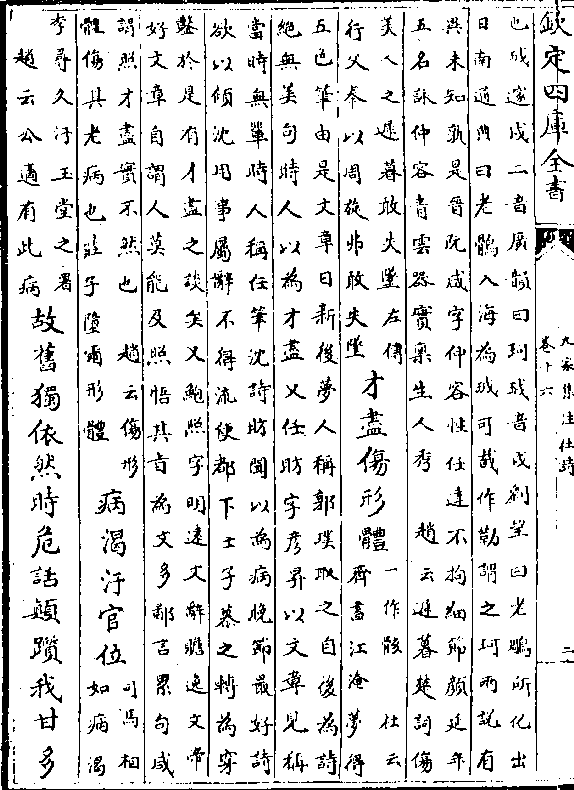 欽定四庫全書
九家集注杜詩
卷十六
二
也珬遂戌二音廣韻曰珂珬音戌劉望曰老鵰所化出
日南通曰老鶻入海為珬可截作勒謂之珂兩説有
異未知孰是晉阮咸字仲容性任達不拘細節顔延年
五名詠仲容青雲器實禀生人秀 趙云遲暮楚詞傷
美人之遲暮敢失墜左傳
行父奉以周旋非敢失墜
才盡傷形體
一作骸 杜云
齊書江淹夢得
五色筆由是文章日新後夢人稱郭璞取之自後為詩
絶無美句時人以為才盡又任昉字彦昇以文章見稱
當時無輩時人稱任筆沈詩昉聞以為病晚節最好詩
欲以傾沈用事屬辭不得流便都下士子慕之轉為穿
鑿於是有才盡之談矣又鮑照字明遠文辭贍逸文帝
好文章自謂人莫能及照悟其旨為文多鄙言累句咸
謂照才盡實不然也 趙云傷形
體傷其老病也莊子墮爾形體
病渴汙官位
司馬相
如病渴
李尋久汙玉堂之署
趙云公適有此病
故舊獨依然時危話顛躓我甘多